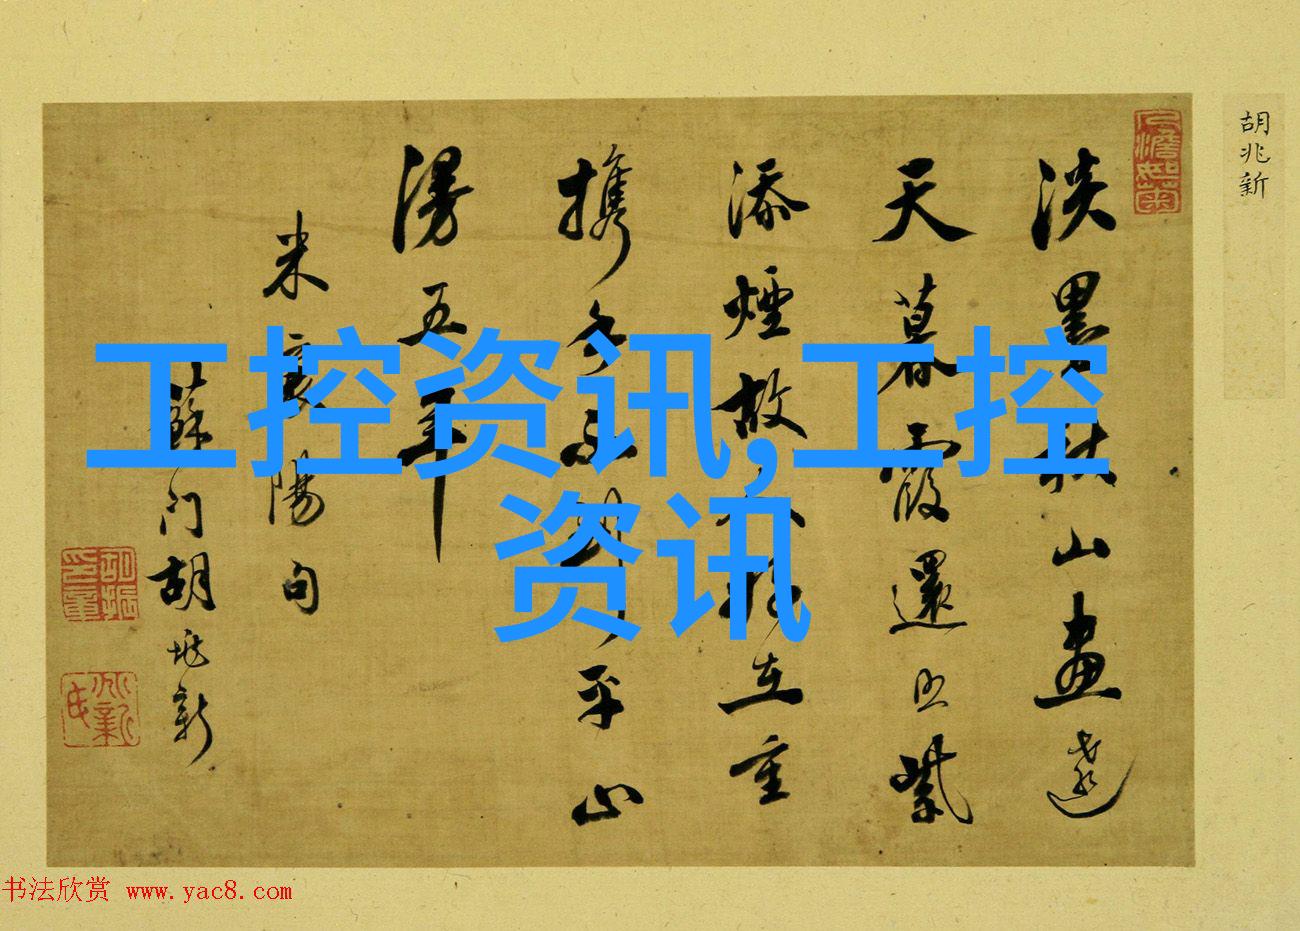 胡兆新
淡墨秋山畫遠
天暮霞還照紫
添煙故人好在重
攜手不到平山
漫五年
米襄陽句
蘇门胡兆新
工控资讯,工控
资讯
书法欣赏 www.yac8.com